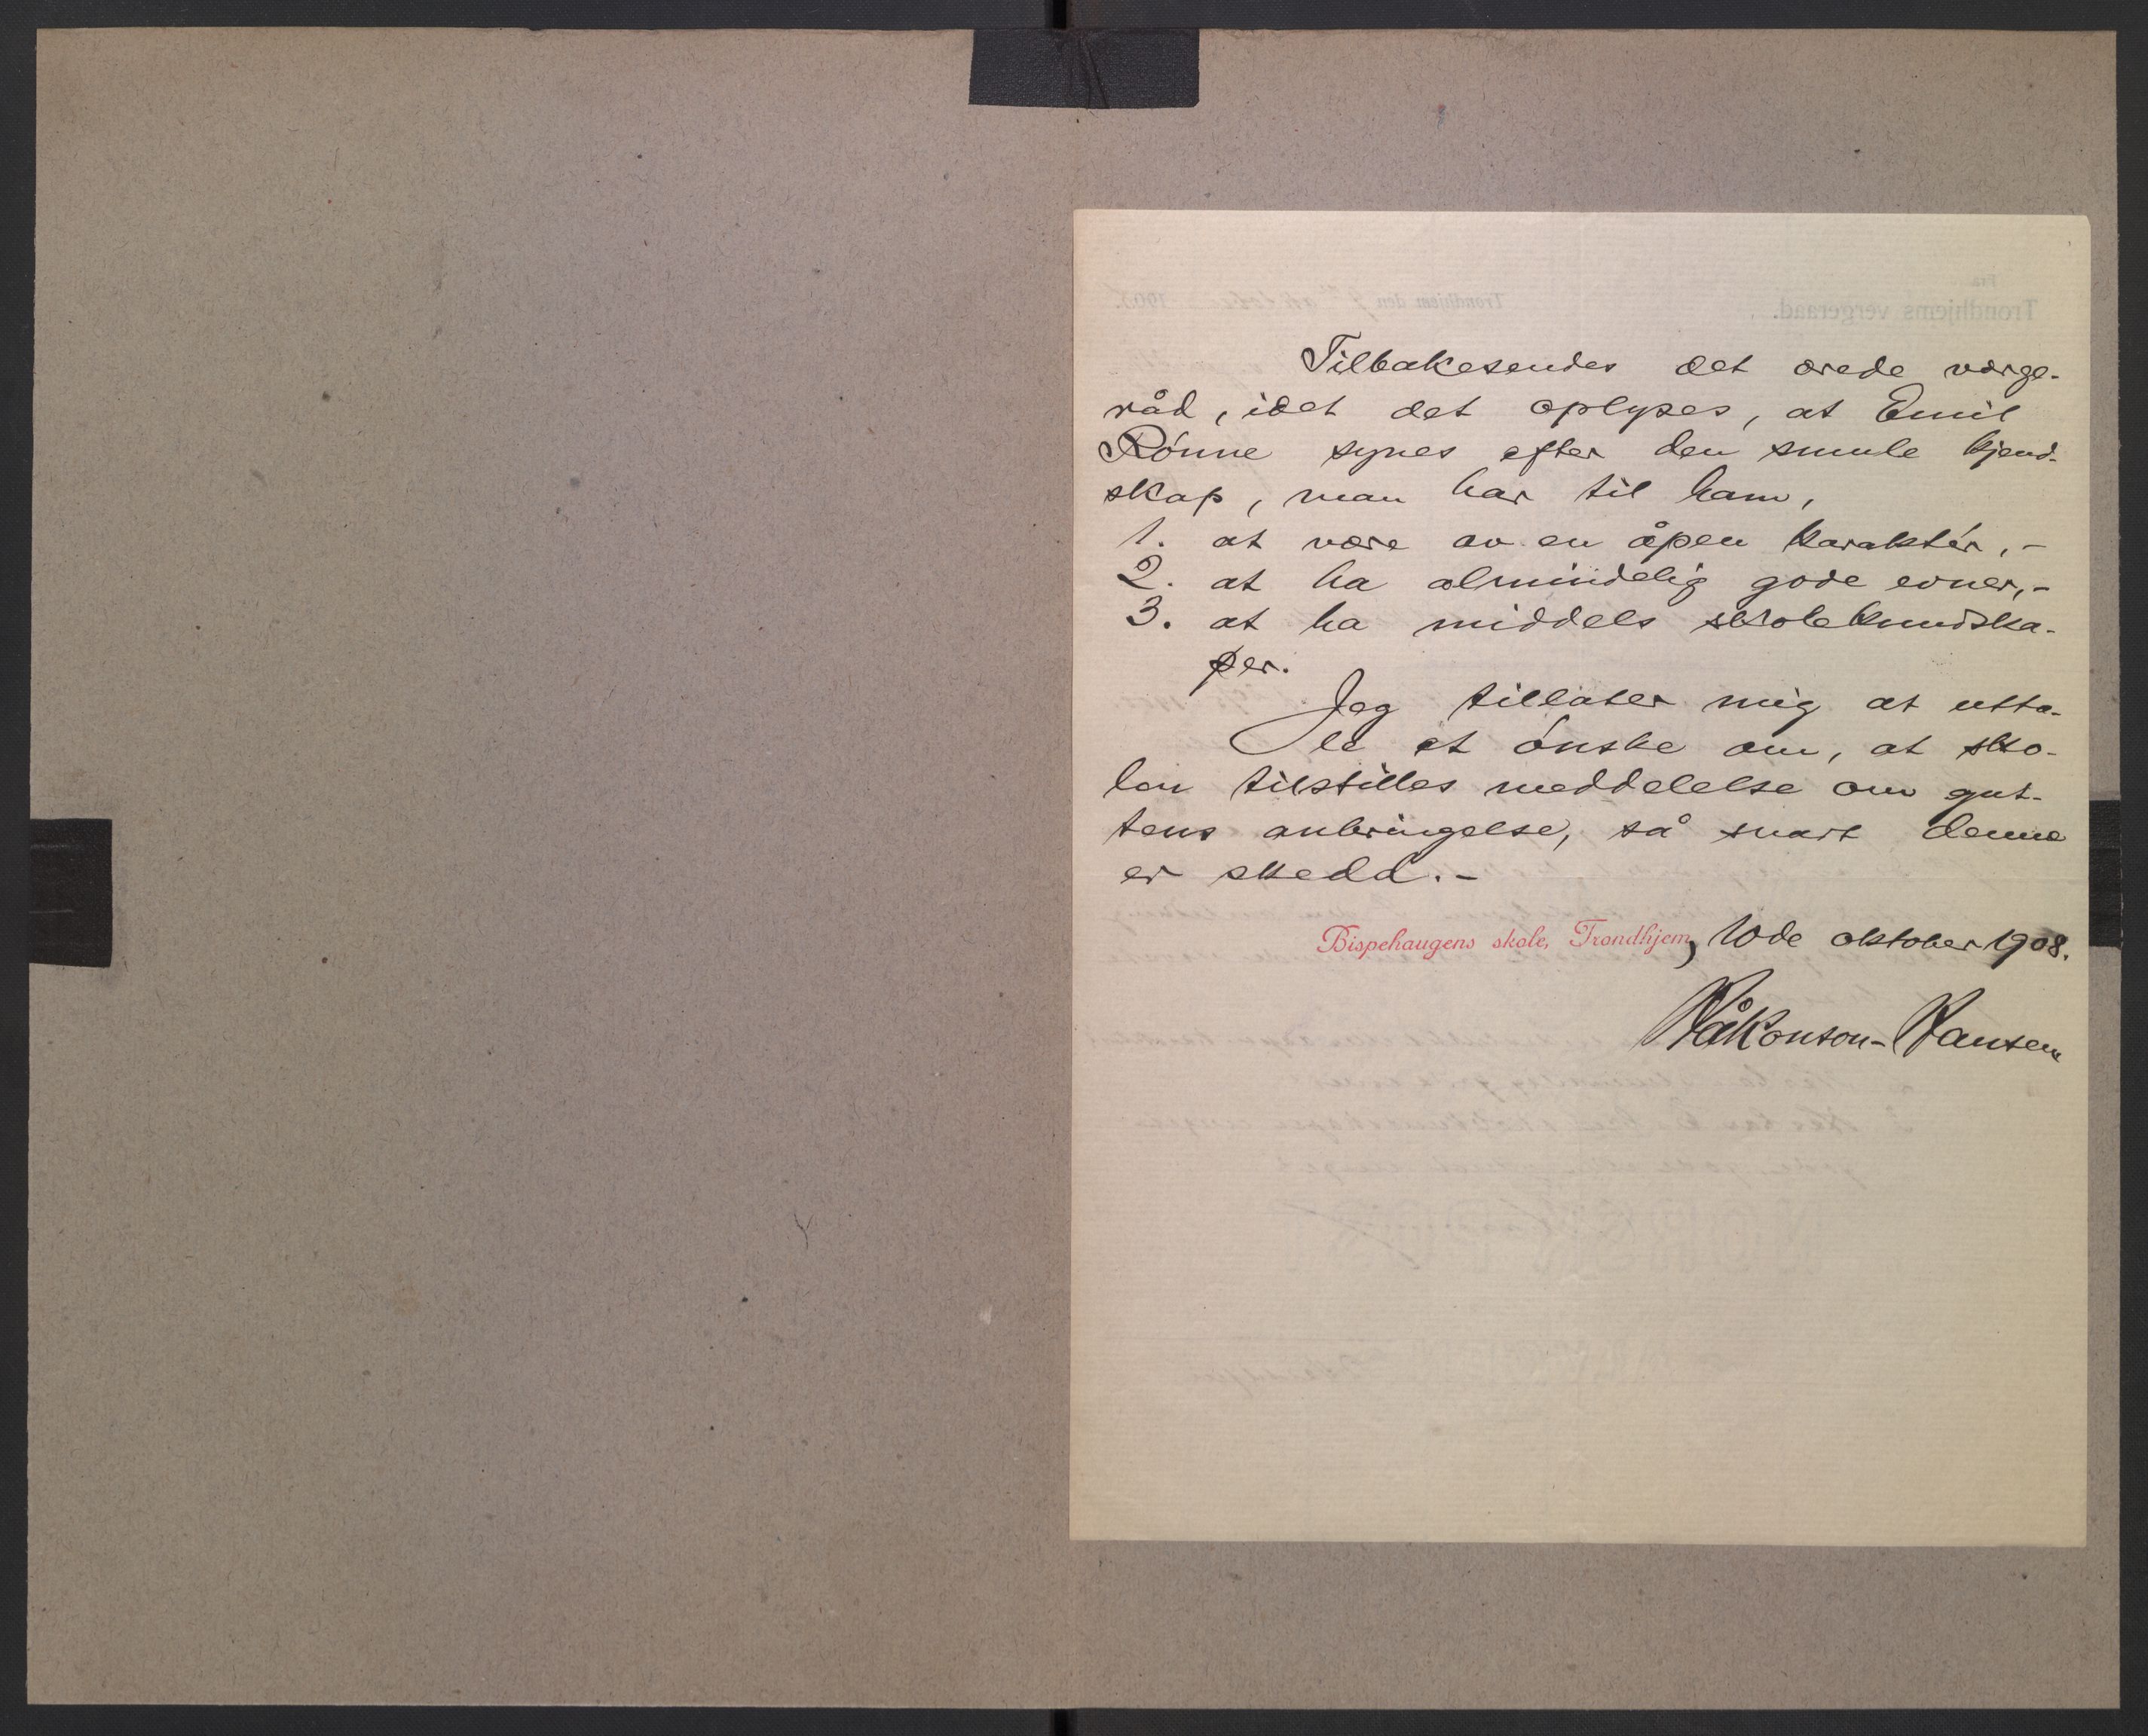 Tilbakesendes det ærede værge-
råd, idet det oplyses, at Emil
Rónne synes efter den smule kjend-
skap, man har til ham,
1. at være av en åpen karaktér,-
2. at ha almindelig gode evner,-
3. at ha middels skolekundska-
per.
Jeg tillater mig at utta-
le et ónske om, at sko-
len tilstilles meddelelse om gut-
tens anbringelse, så snart denne
er skedd.-
Bispehaugens skole, Trondhjem, 10de oktober 1908.
Håkonson-Hansen
Fra
Trondhjems vergeraad.
Trondhjem den